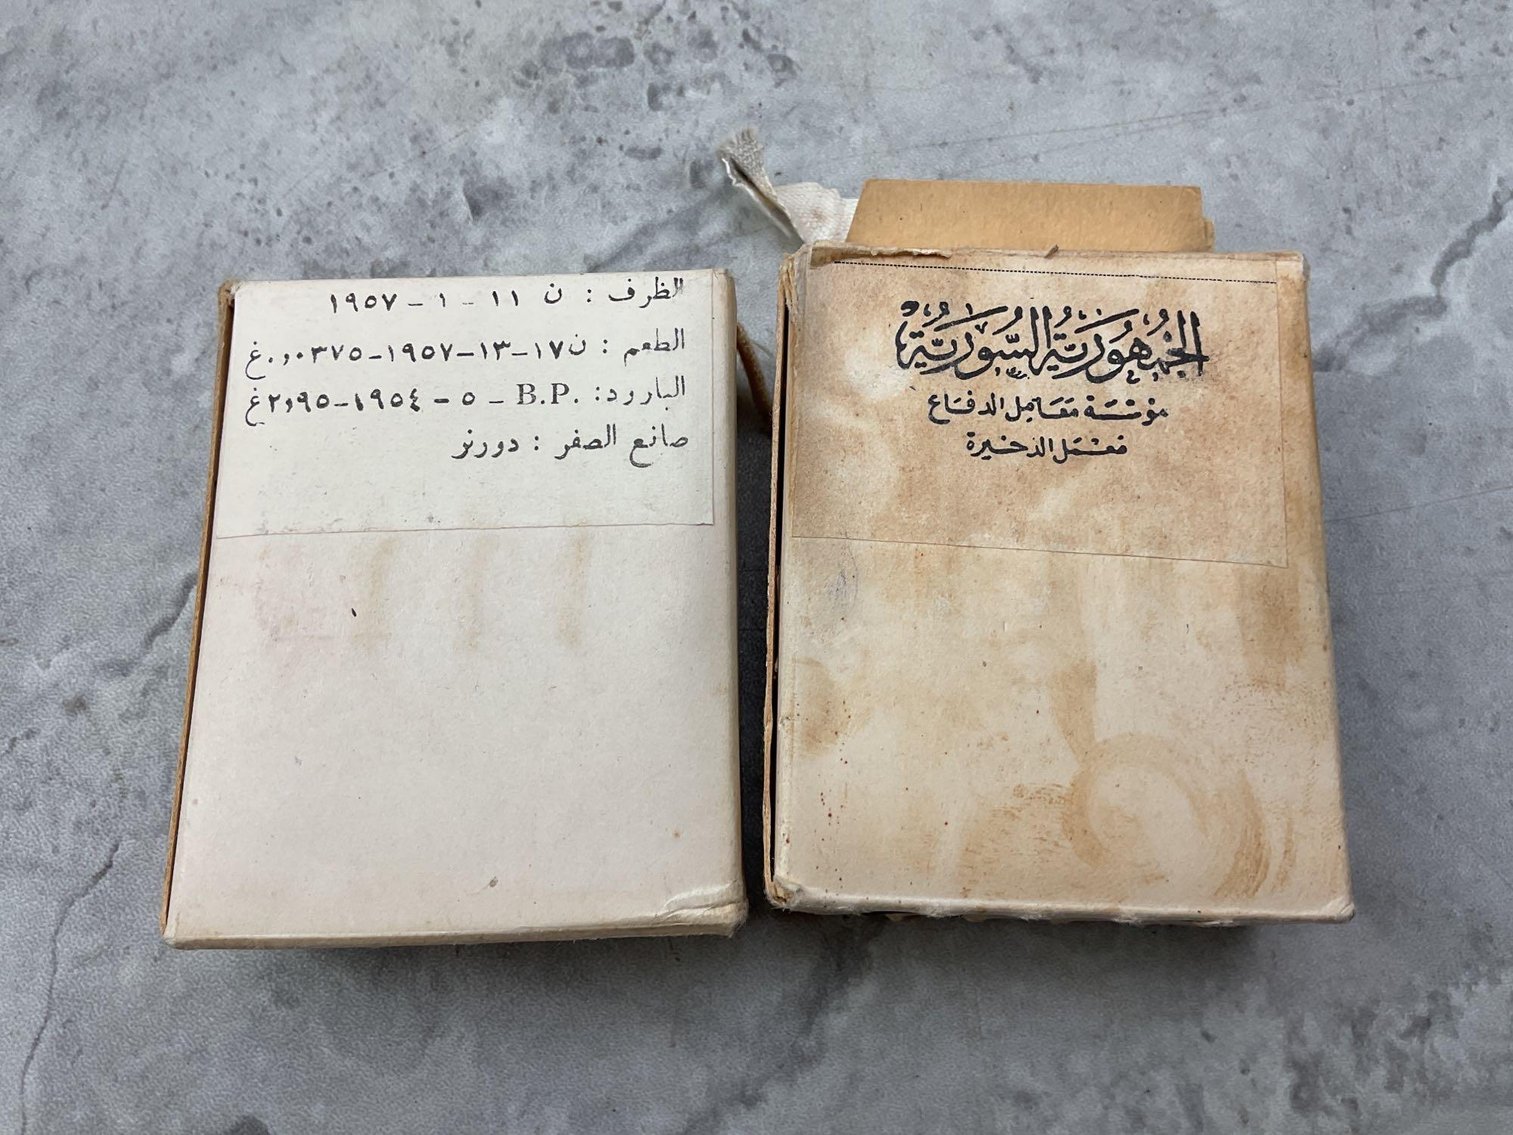 الظرف : ن ١١ - ١ - ١٩٥٧
الطعم : ن١٧-١٣-١٩٥٧-٠,٠٣٧٥غ
البارود: .B.P - ٥ - ١٩٥٤-٢,٩٥غ
صانع الصفر : دورنر
الجُمْهُورِيَّةُ السُّورِيَّةُ
مؤسسة معامل الدفاع
معمل الذخيرة